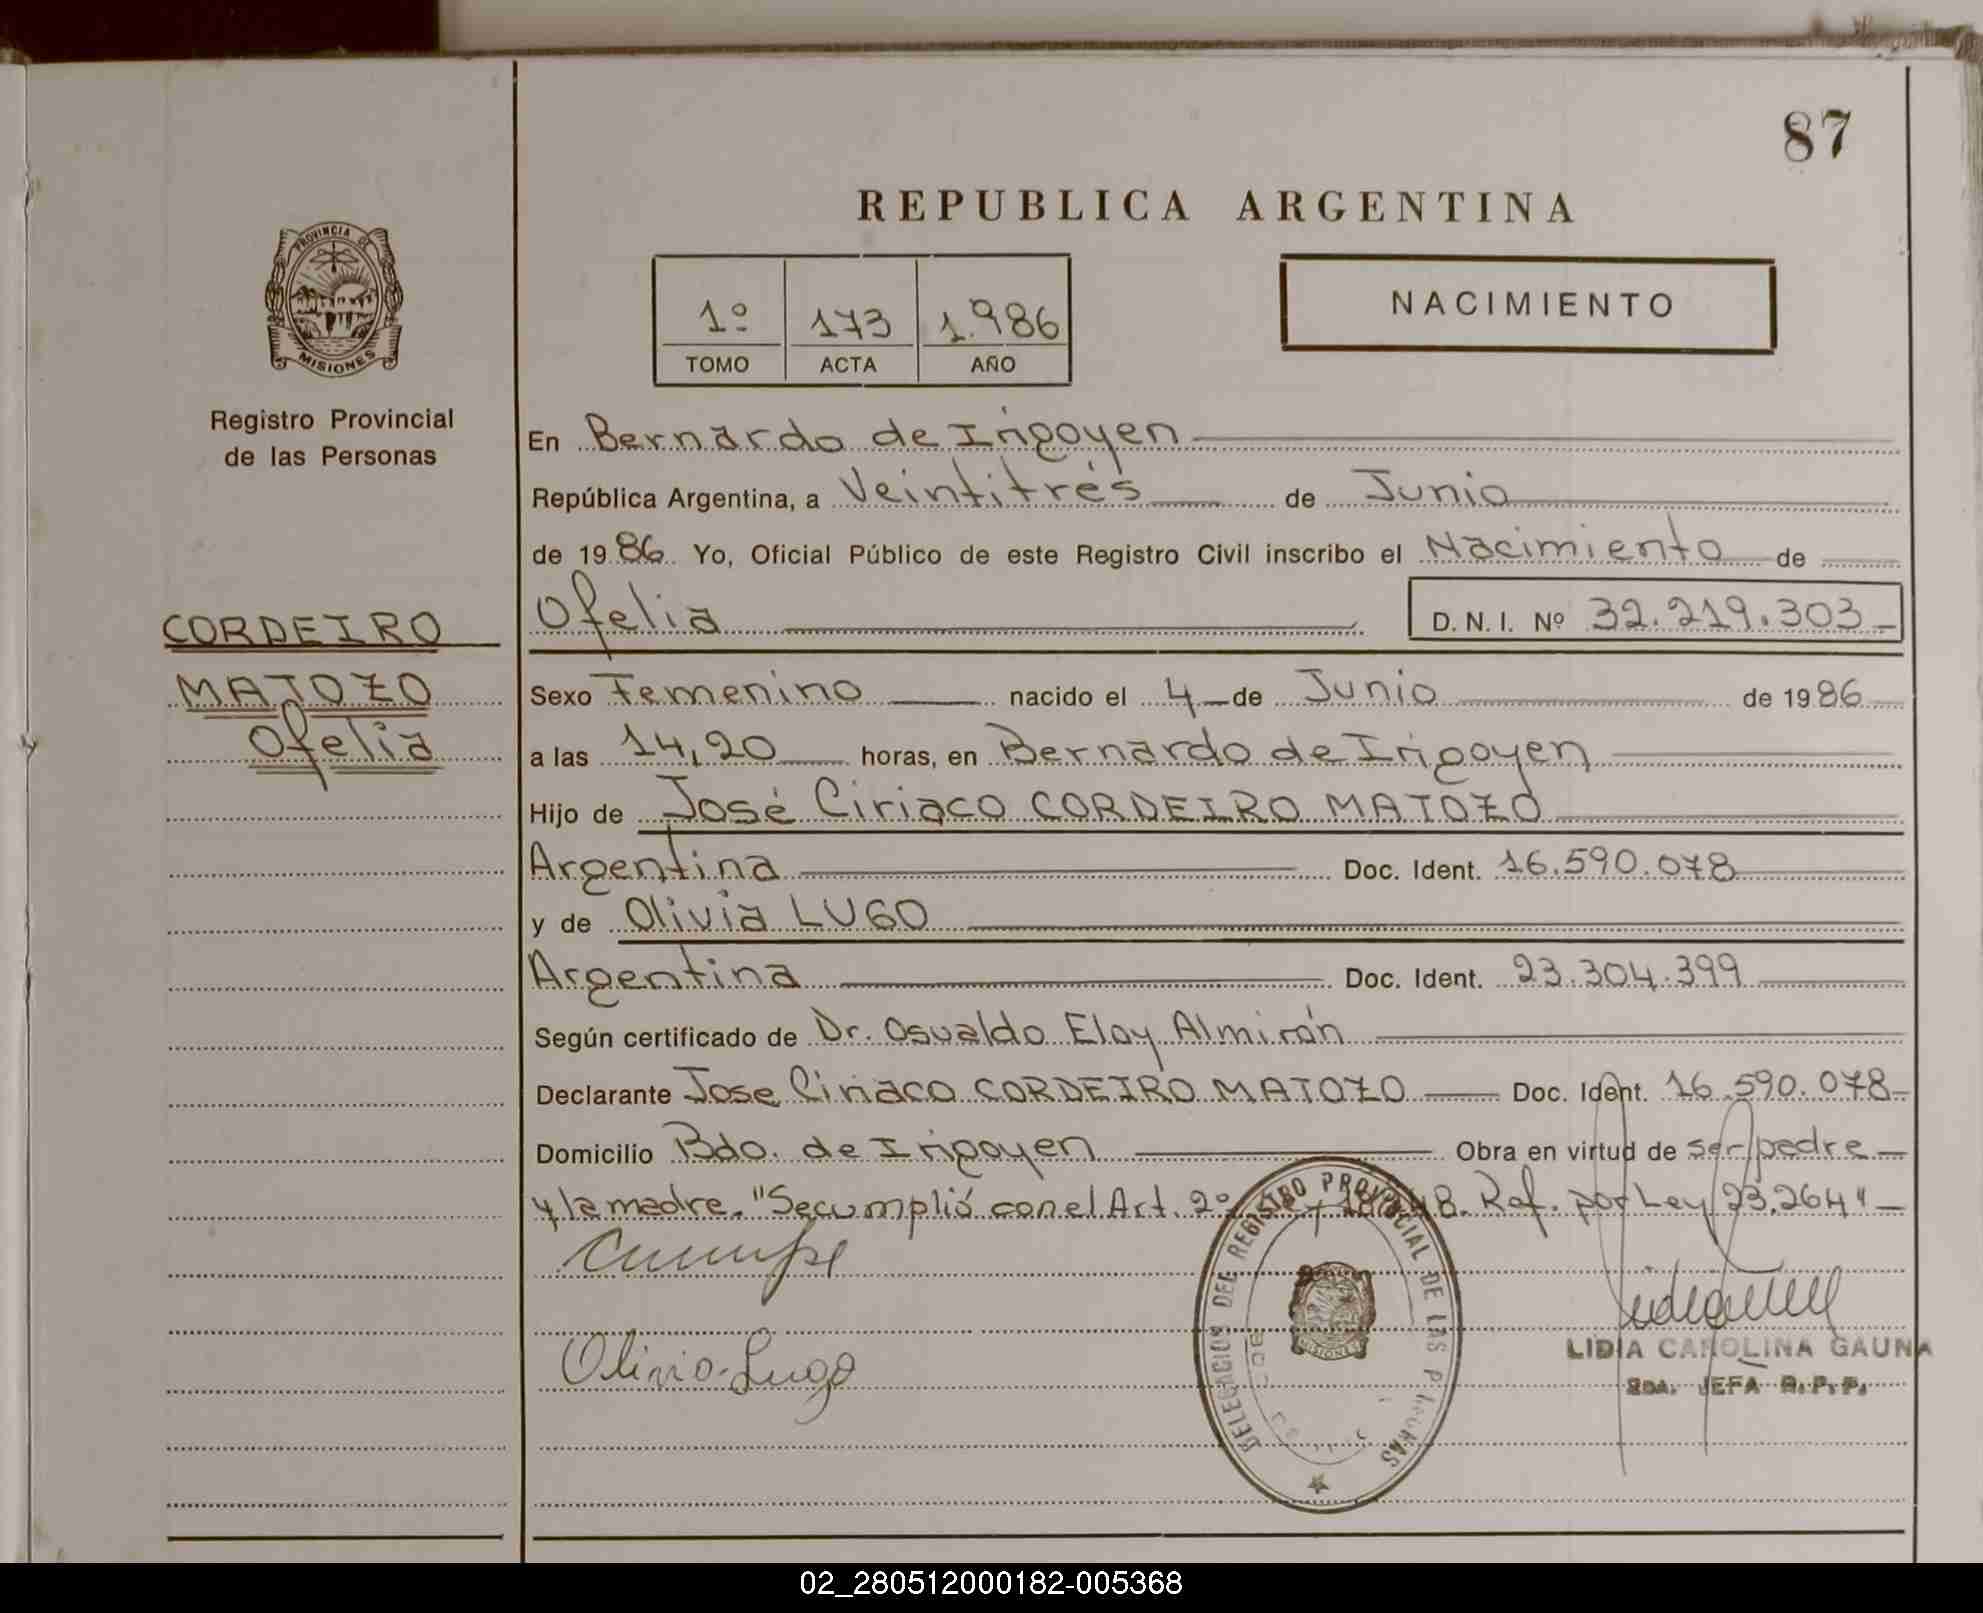 87
REPUBLICA ARGENTINA
PROVINCIA DE
MISIONES
Registro Provincial
de las Personas
1º 173 1.986
TOMO ACTA AÑO
NACIMIENTO
En Bernardo de Irigoyen
República Argentina, a Veintitrés de Junio
de 1986 Yo, Oficial Público de este Registro Civil inscribo el Nacimiento de
Ofelia D.N.I. Nº 32.219.303
CORDEIRO
MATOZO
Ofelia
Sexo Femenino nacido el 4 de Junio de 1986
a las 14,20 horas, en Bernardo de Irigoyen
Hijo de José Ciriaco CORDEIRO MATOZO
Argentina Doc. Ident. 16.590.078
y de Olivia LUGO
Argentina Doc. Ident. 23.304.399
Según certificado de Dr. Osvaldo Eloy Almirón
Declarante Jose Ciriaco CORDEIRO MATOZO Doc. Ident. 16.590.078
Domicilio Bdo. de Irigoyen Obra en virtud de ser padre
y la madre. "Se cumplió con el Art. 2º Ref. por Ley 23.264"
Olivia Lugo
DELEGACION DEL REGISTRO PROVINCIAL DE LAS PERSONAS
MISIONES
LIDIA CAROLINA GAUNA
2DA. JEFA R.P.P.
02_280512000182-005368